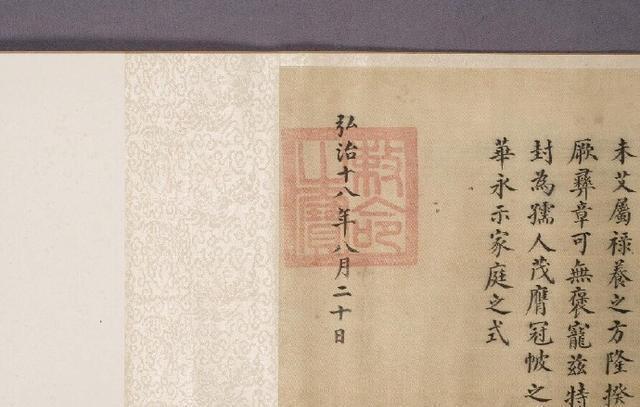 未艾屬禄養之方隆揆
厥彞章可無褒寵兹特
封為孺人茂膺冠帔之
華永示家庭之式
弘治十八年八月二十日
敕命之寶